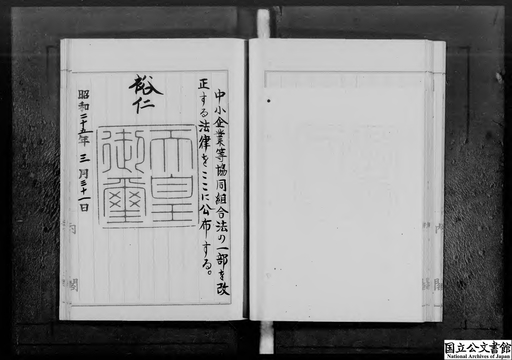 中小企業等協同組合法の一部を改
正する法律をここに公布する。
裕仁
天皇
御璽
昭和二十五年三月三十一日
内閣
内閣
国立公文書館
National Archives of Japan